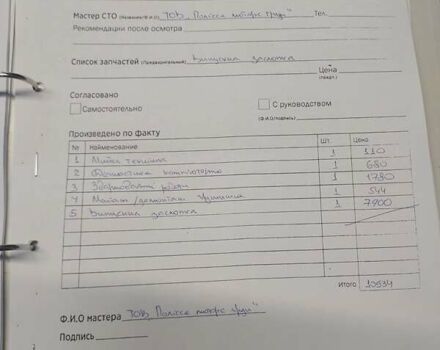 Мастер СТО (Название/Ф.И.О) ТОВ „Полісся моторс груп" Тел.
Рекомендации после осмотра
Список запчастей (Предварительный) Випускна заслонка
Цена
(предв.)
Согласовано
Самостоятельно
С руководством
(Ф.И.О/подпись)
Произведено по факту
№ Наименование ШТ. Цена
1 Мийка техніки 1 110
2 Діагностика комп'ютерна 1 680
3 Зварювальні роботи 1 1780
4 Монтаж/демонтаж 1 544
5 Випускна заслонка 1 7900
Итого
Ф.И.О мастера ТОВ „Полісся моторс груп"
Подпись